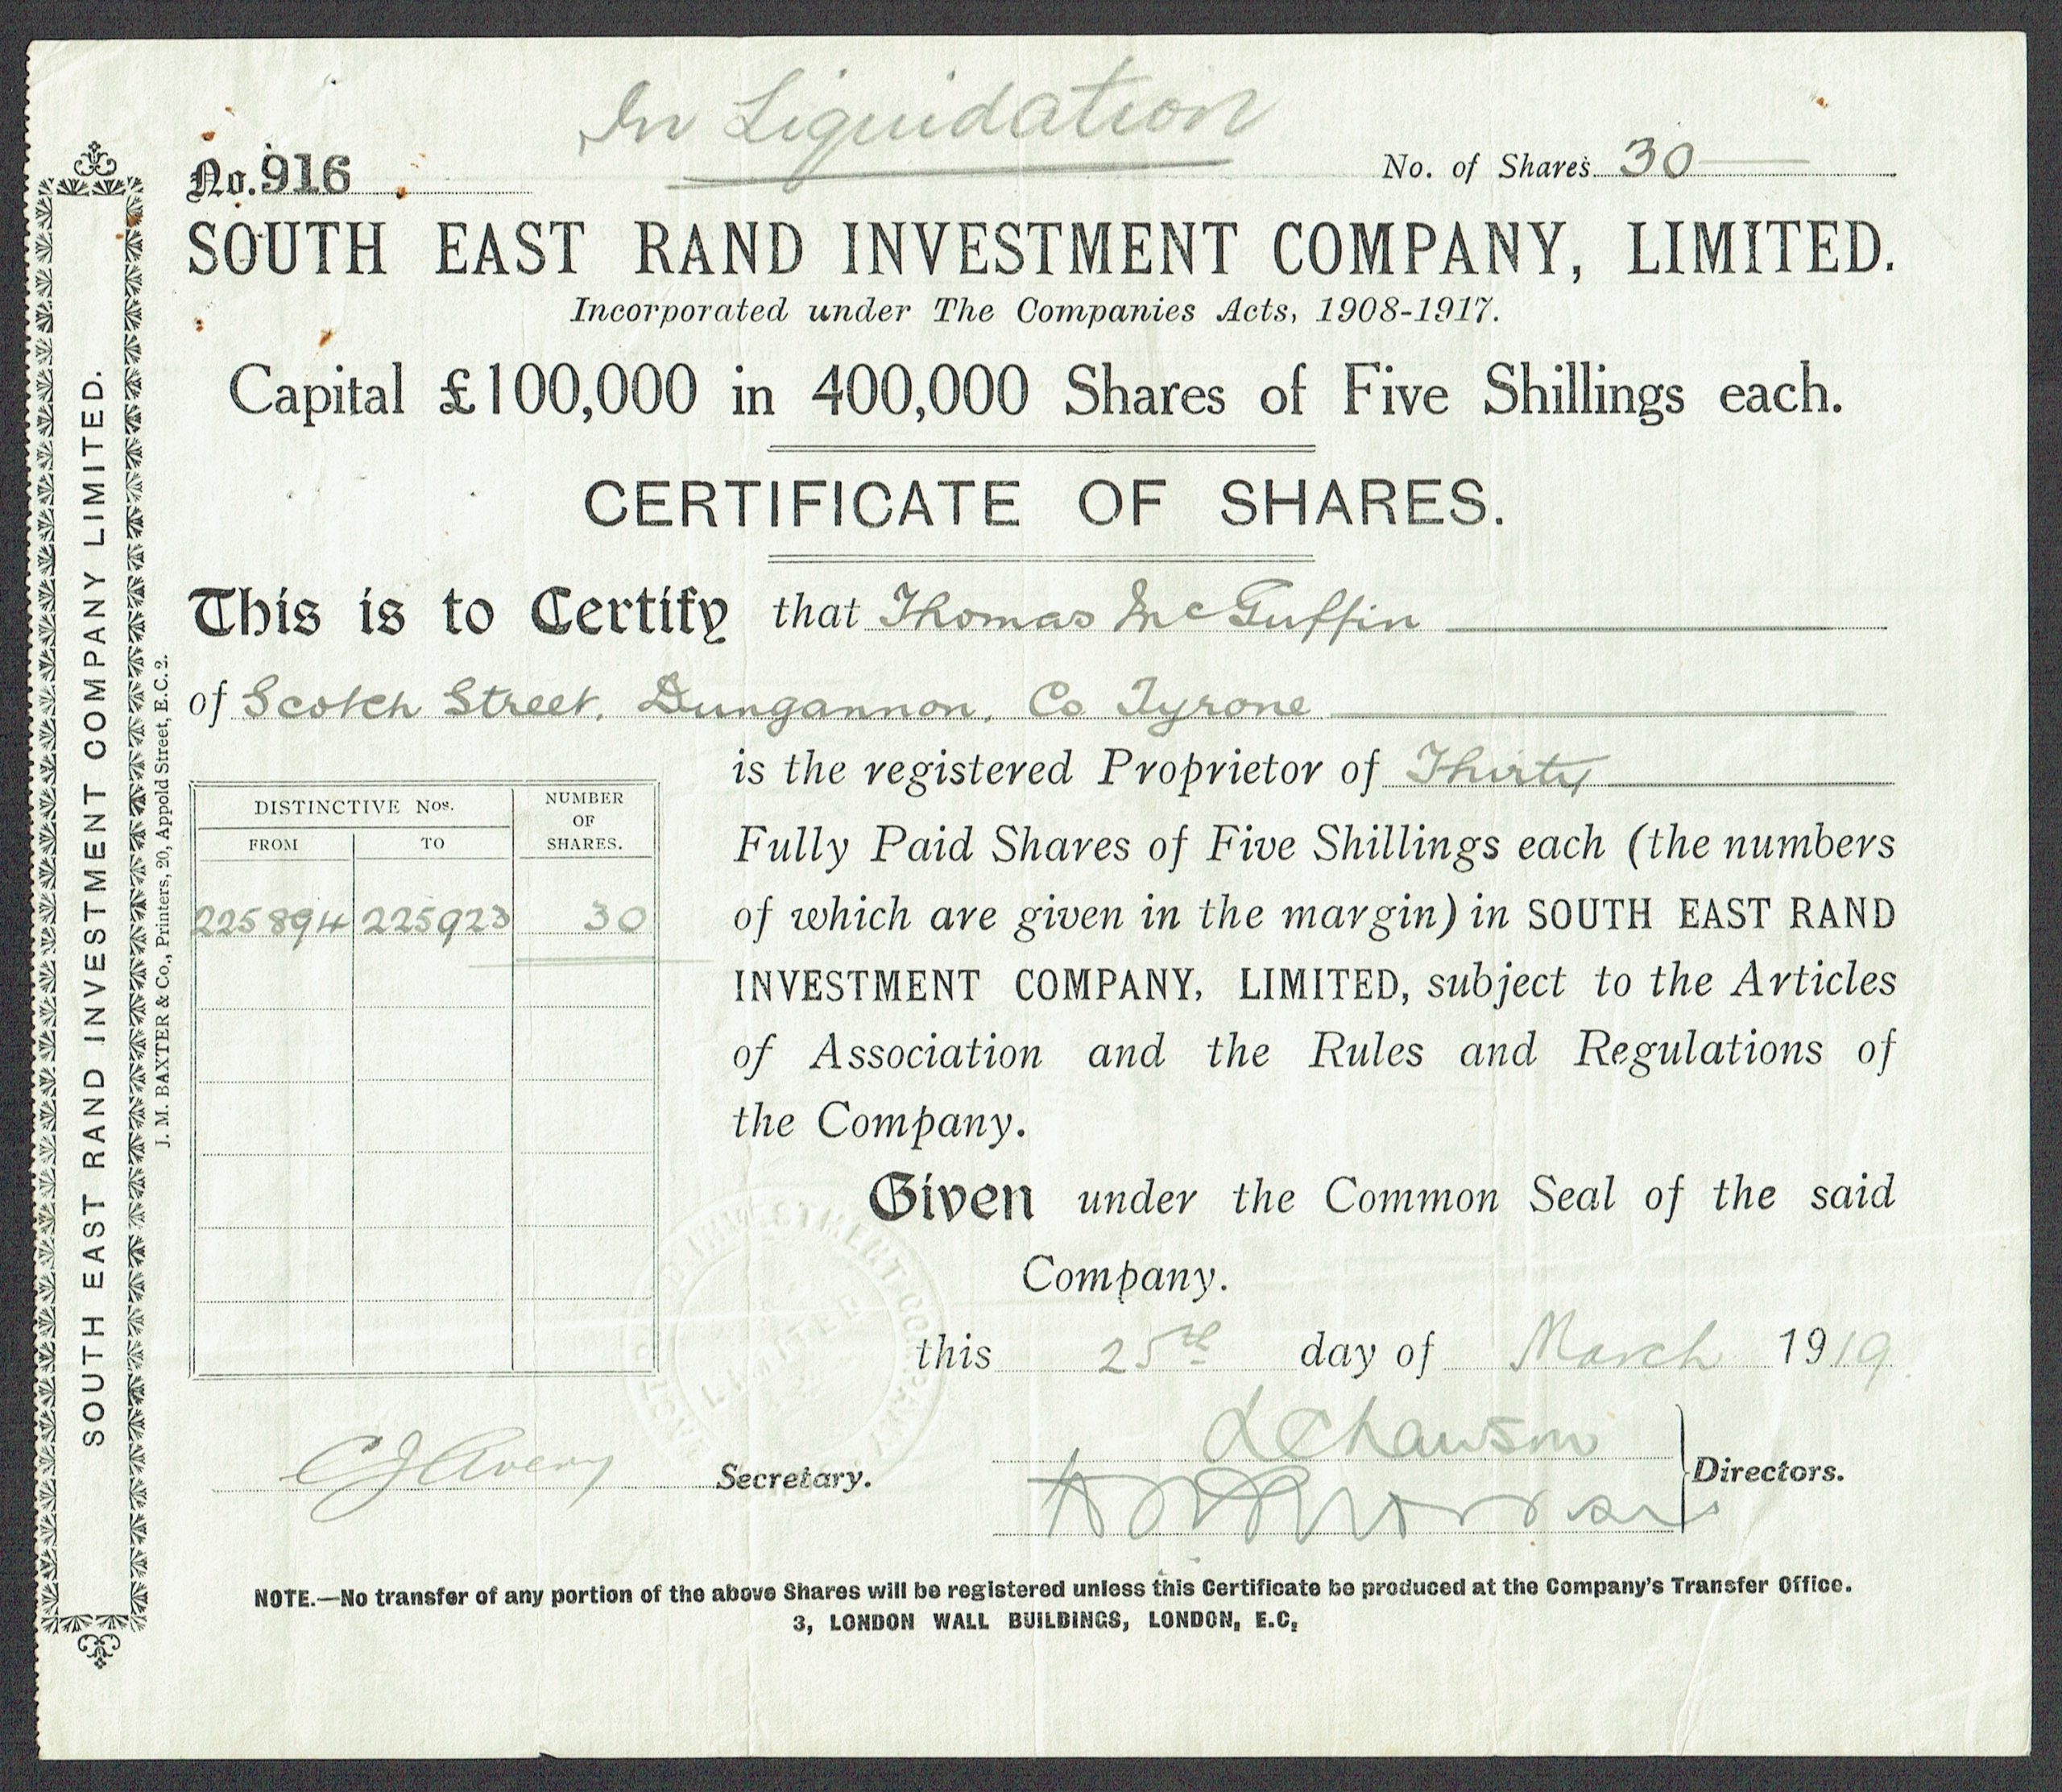 In Liquidation
No. 916
No. of Shares 30
SOUTH EAST RAND INVESTMENT COMPANY, LIMITED.
Incorporated under The Companies Acts, 1908-1917.
Capital £100,000 in 400,000 Shares of Five Shillings each.
CERTIFICATE OF SHARES.
This is to Certify that Thomas McGuffin
of Scotch Street, Dungannon, Co Tyrone
is the registered Proprietor of Thirty
Fully Paid Shares of Five Shillings each (the numbers
of which are given in the margin) in SOUTH EAST RAND
INVESTMENT COMPANY, LIMITED, subject to the Articles
of Association and the Rules and Regulations of
the Company.
DISTINCTIVE Nos.
NUMBER OF SHARES.
FROM TO
225894 225923 30
Given under the Common Seal of the said
Company.
this 25th day of March 1919.
C J Avery Secretary.
Directors.
NOTE.—No transfer of any portion of the above Shares will be registered unless this Certificate be produced at the Company's Transfer Office.
3, LONDON WALL BUILDINGS, LONDON, E.C.
SOUTH EAST RAND INVESTMENT COMPANY LIMITED.
J. M. BAXTER & Co., Printers, 20, Appold Street, E.C. 2.
INVESTMENT COMPANY
LIMITED